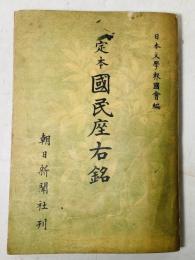 日本文學報國會編
定本國民座右銘
朝日新聞社刊